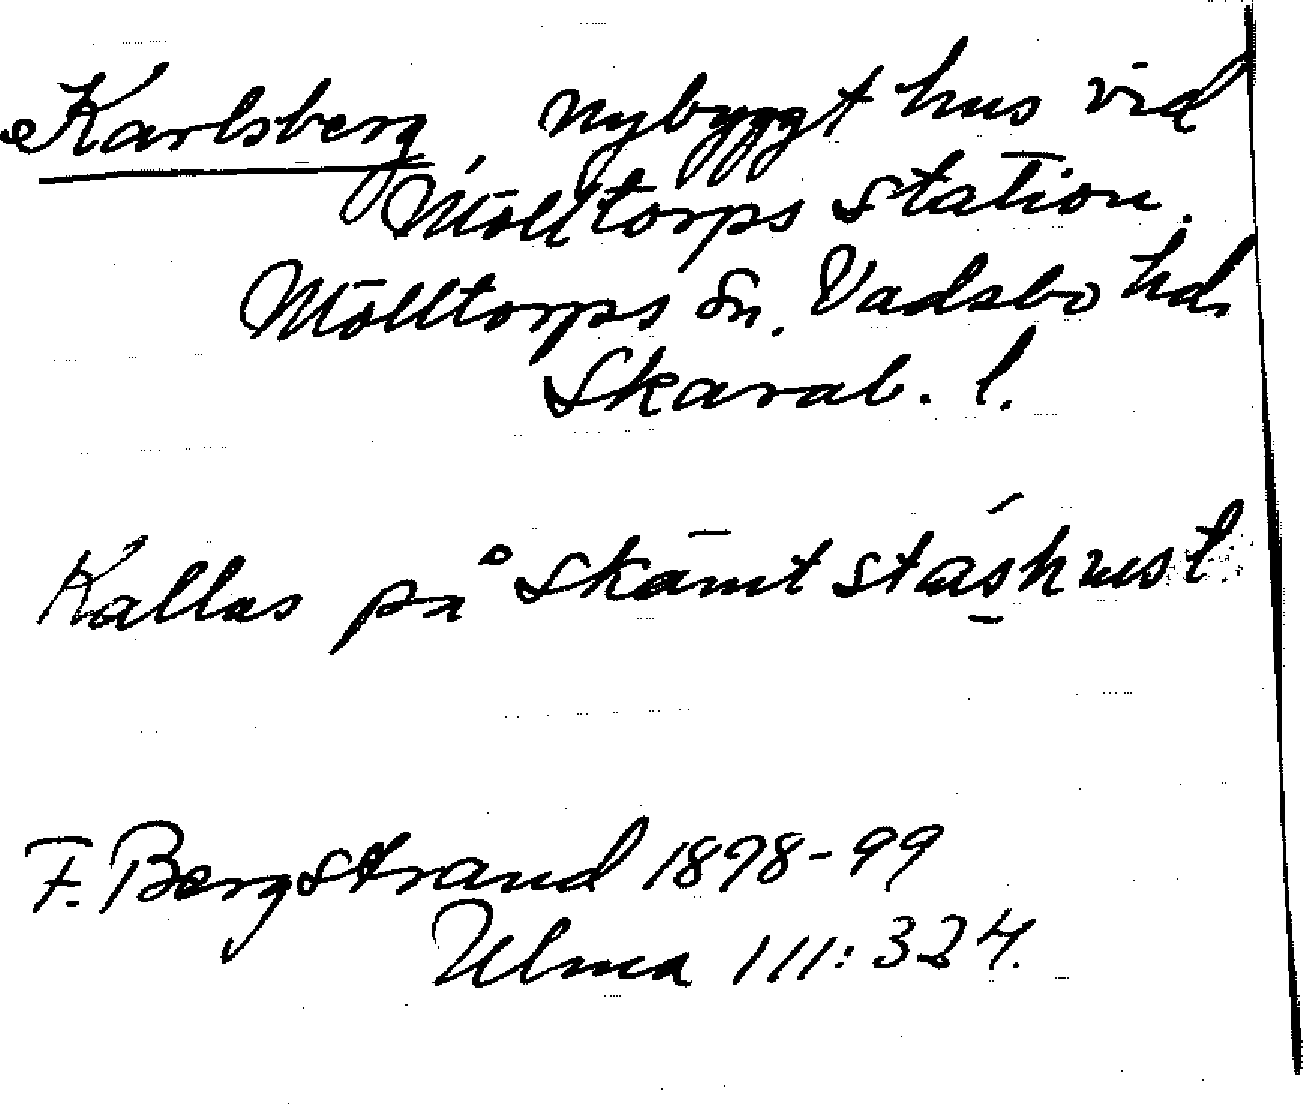 Karlsberg, nybyggt hus vid
Mölltorps station.
Mölltorps sn. Vadsbo hd.
Skarab. l.
Kallas på skämt
F. Bergstrand 1898-99
Ulma 111:324.